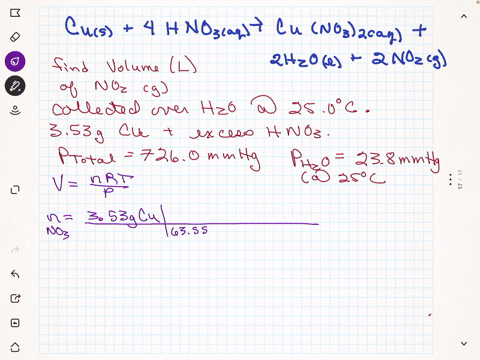 Cu(s) + 4 HNO3(aq) → Cu (NO3)2(aq) +
2H2O(l) + 2NO2(g)
find Volume (L)
of NO2 (g)
collected over H2O @ 25.0°C.
3.53g Cu + excess HNO3.
PTotal = 726.0 mmHg PH2O = 23.8 mmHg
@ 25°C
V = nRT
P
n = 3.53g Cu
NO3 63.55